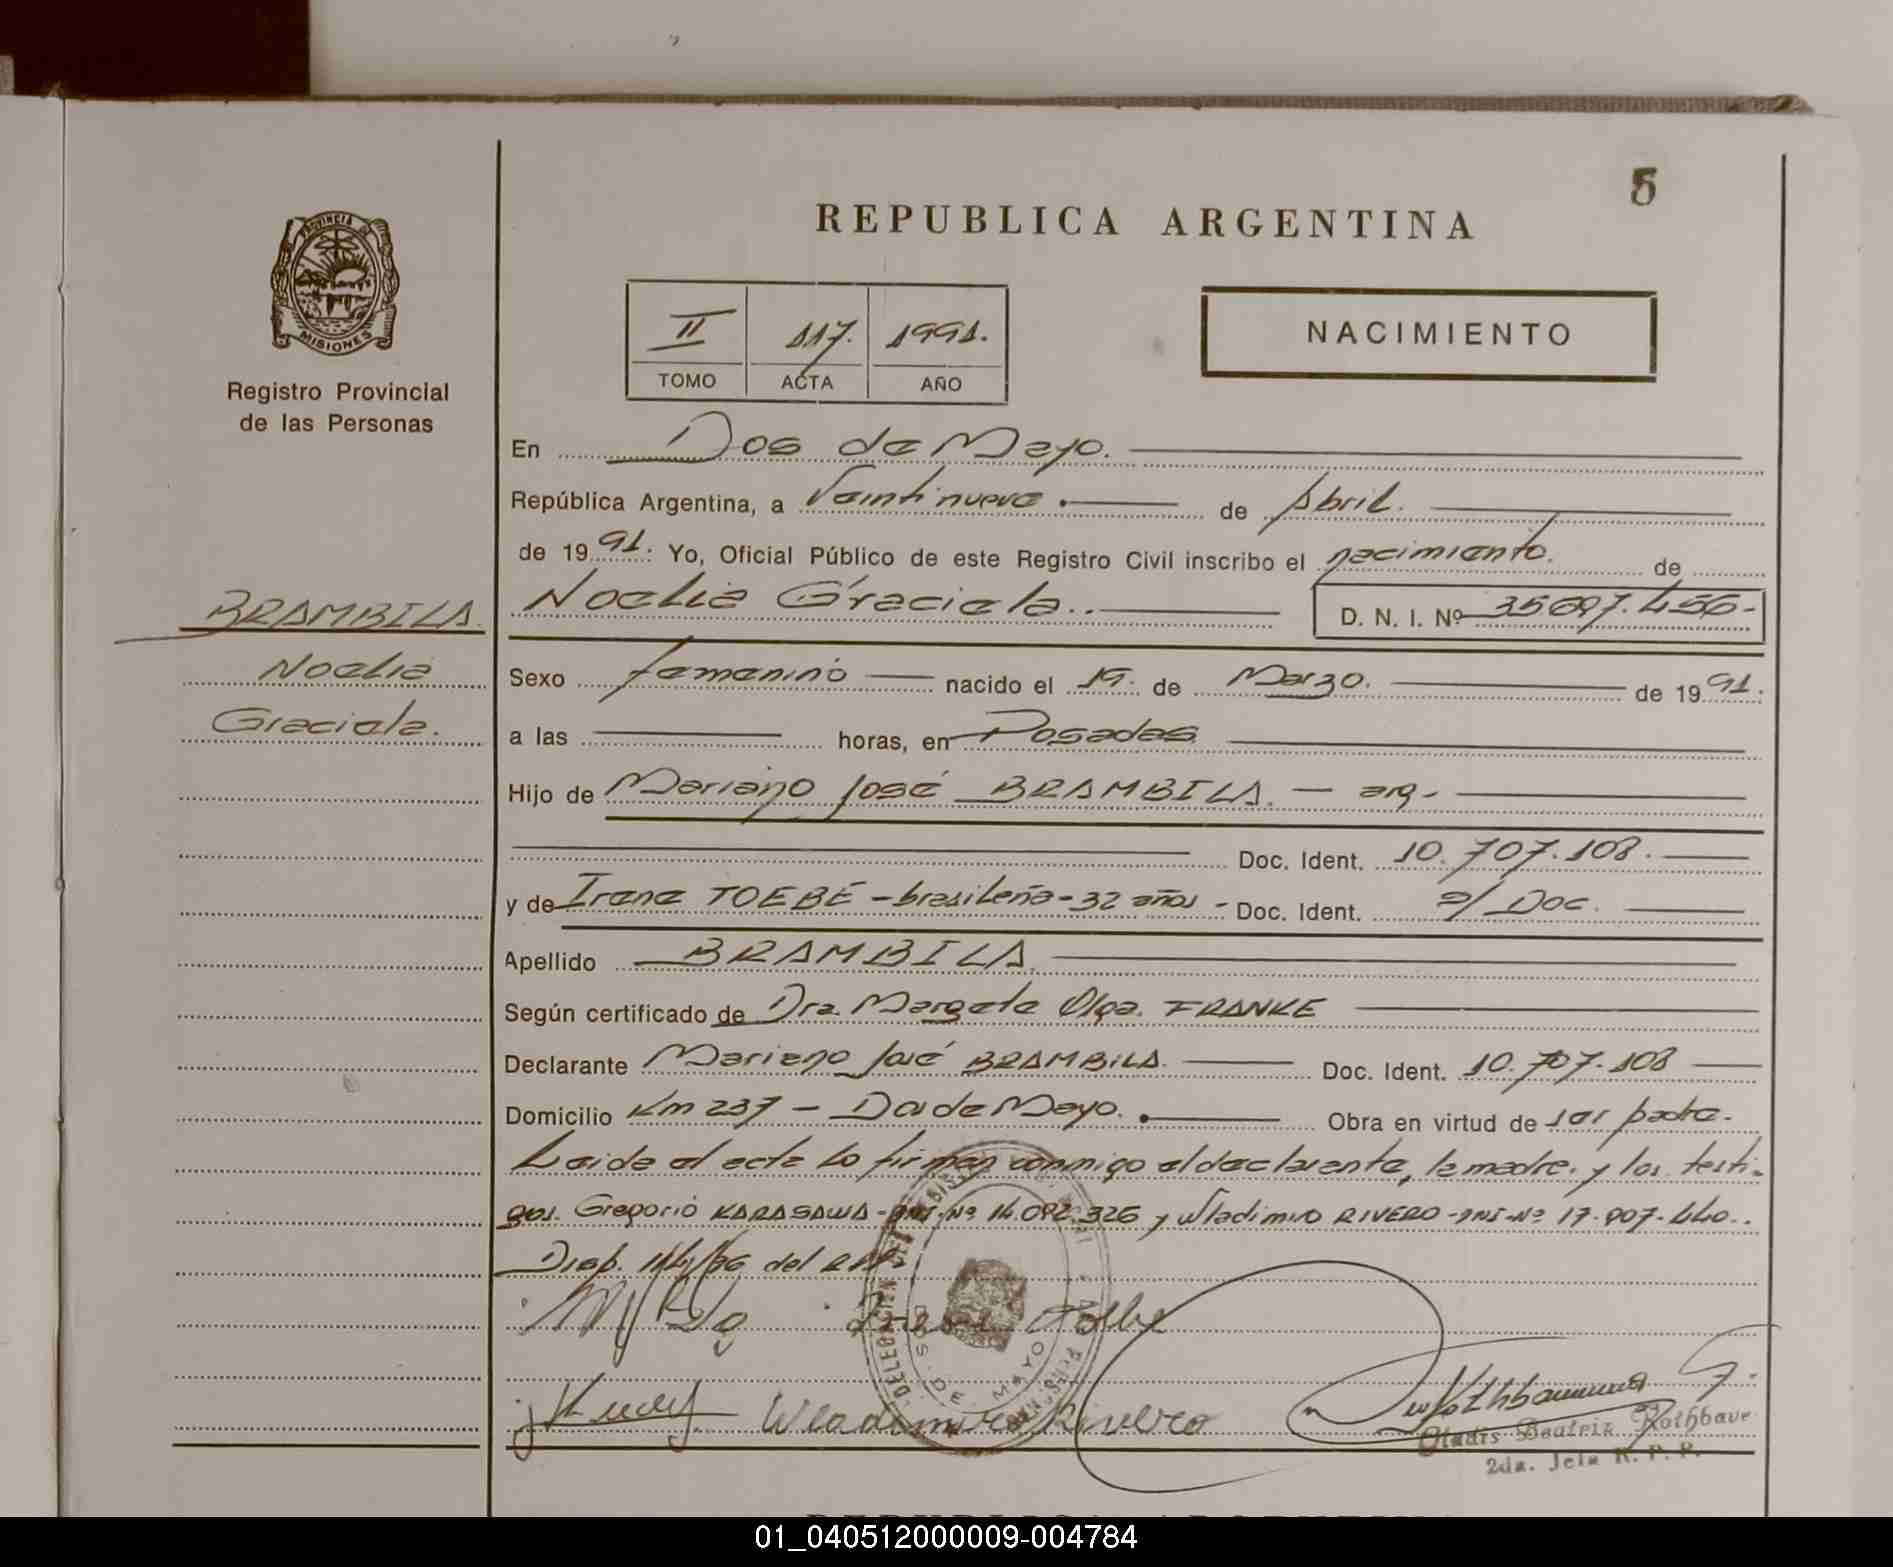 5
REPUBLICA ARGENTINA
PROVINCIA DE MISIONES
Registro Provincial
de las Personas
II 117. 1991.
TOMO ACTA AÑO
NACIMIENTO
En Dos de Mayo.
República Argentina, a Veintinueve de Abril.
de 1991. Yo, Oficial Público de este Registro Civil inscribo el nacimiento. de
BRAMBILA. Noelia Graciela.. D. N. I. Nº 35697.456-
Noelia Sexo femenino nacido el 19. de Marzo. de 1991.
Graciela. a las horas, en Posadas
Hijo de Mariano José BRAMBILA. - arg.
Doc. Ident. 10.707.108.
y de Irene TOEBE - brasileña - 32 años - Doc. Ident. s/ Doc.
Apellido BRAMBILA.
Según certificado de Dra. Margeta Olga. FRANKE
Declarante Mariano José BRAMBILA. Doc. Ident. 10.707.108
Domicilio Km 237 - Dos de Mayo. Obra en virtud de ser padre.
Leida el acta lo firman conmigo el declarante, la madre. y los testi-
gos. Gregorio KARASAWA - DNI-Nº 14.092.326 y Wladimiro RIVERO - DNI-Nº 17.907.440..
Disp. del RPP.
Wladimiro Rivero
DELEGACION
DOS DE MAYO
Gladis Beatriz Rothbaue
2da. Jefa R. P. P.
01_040512000009-004784